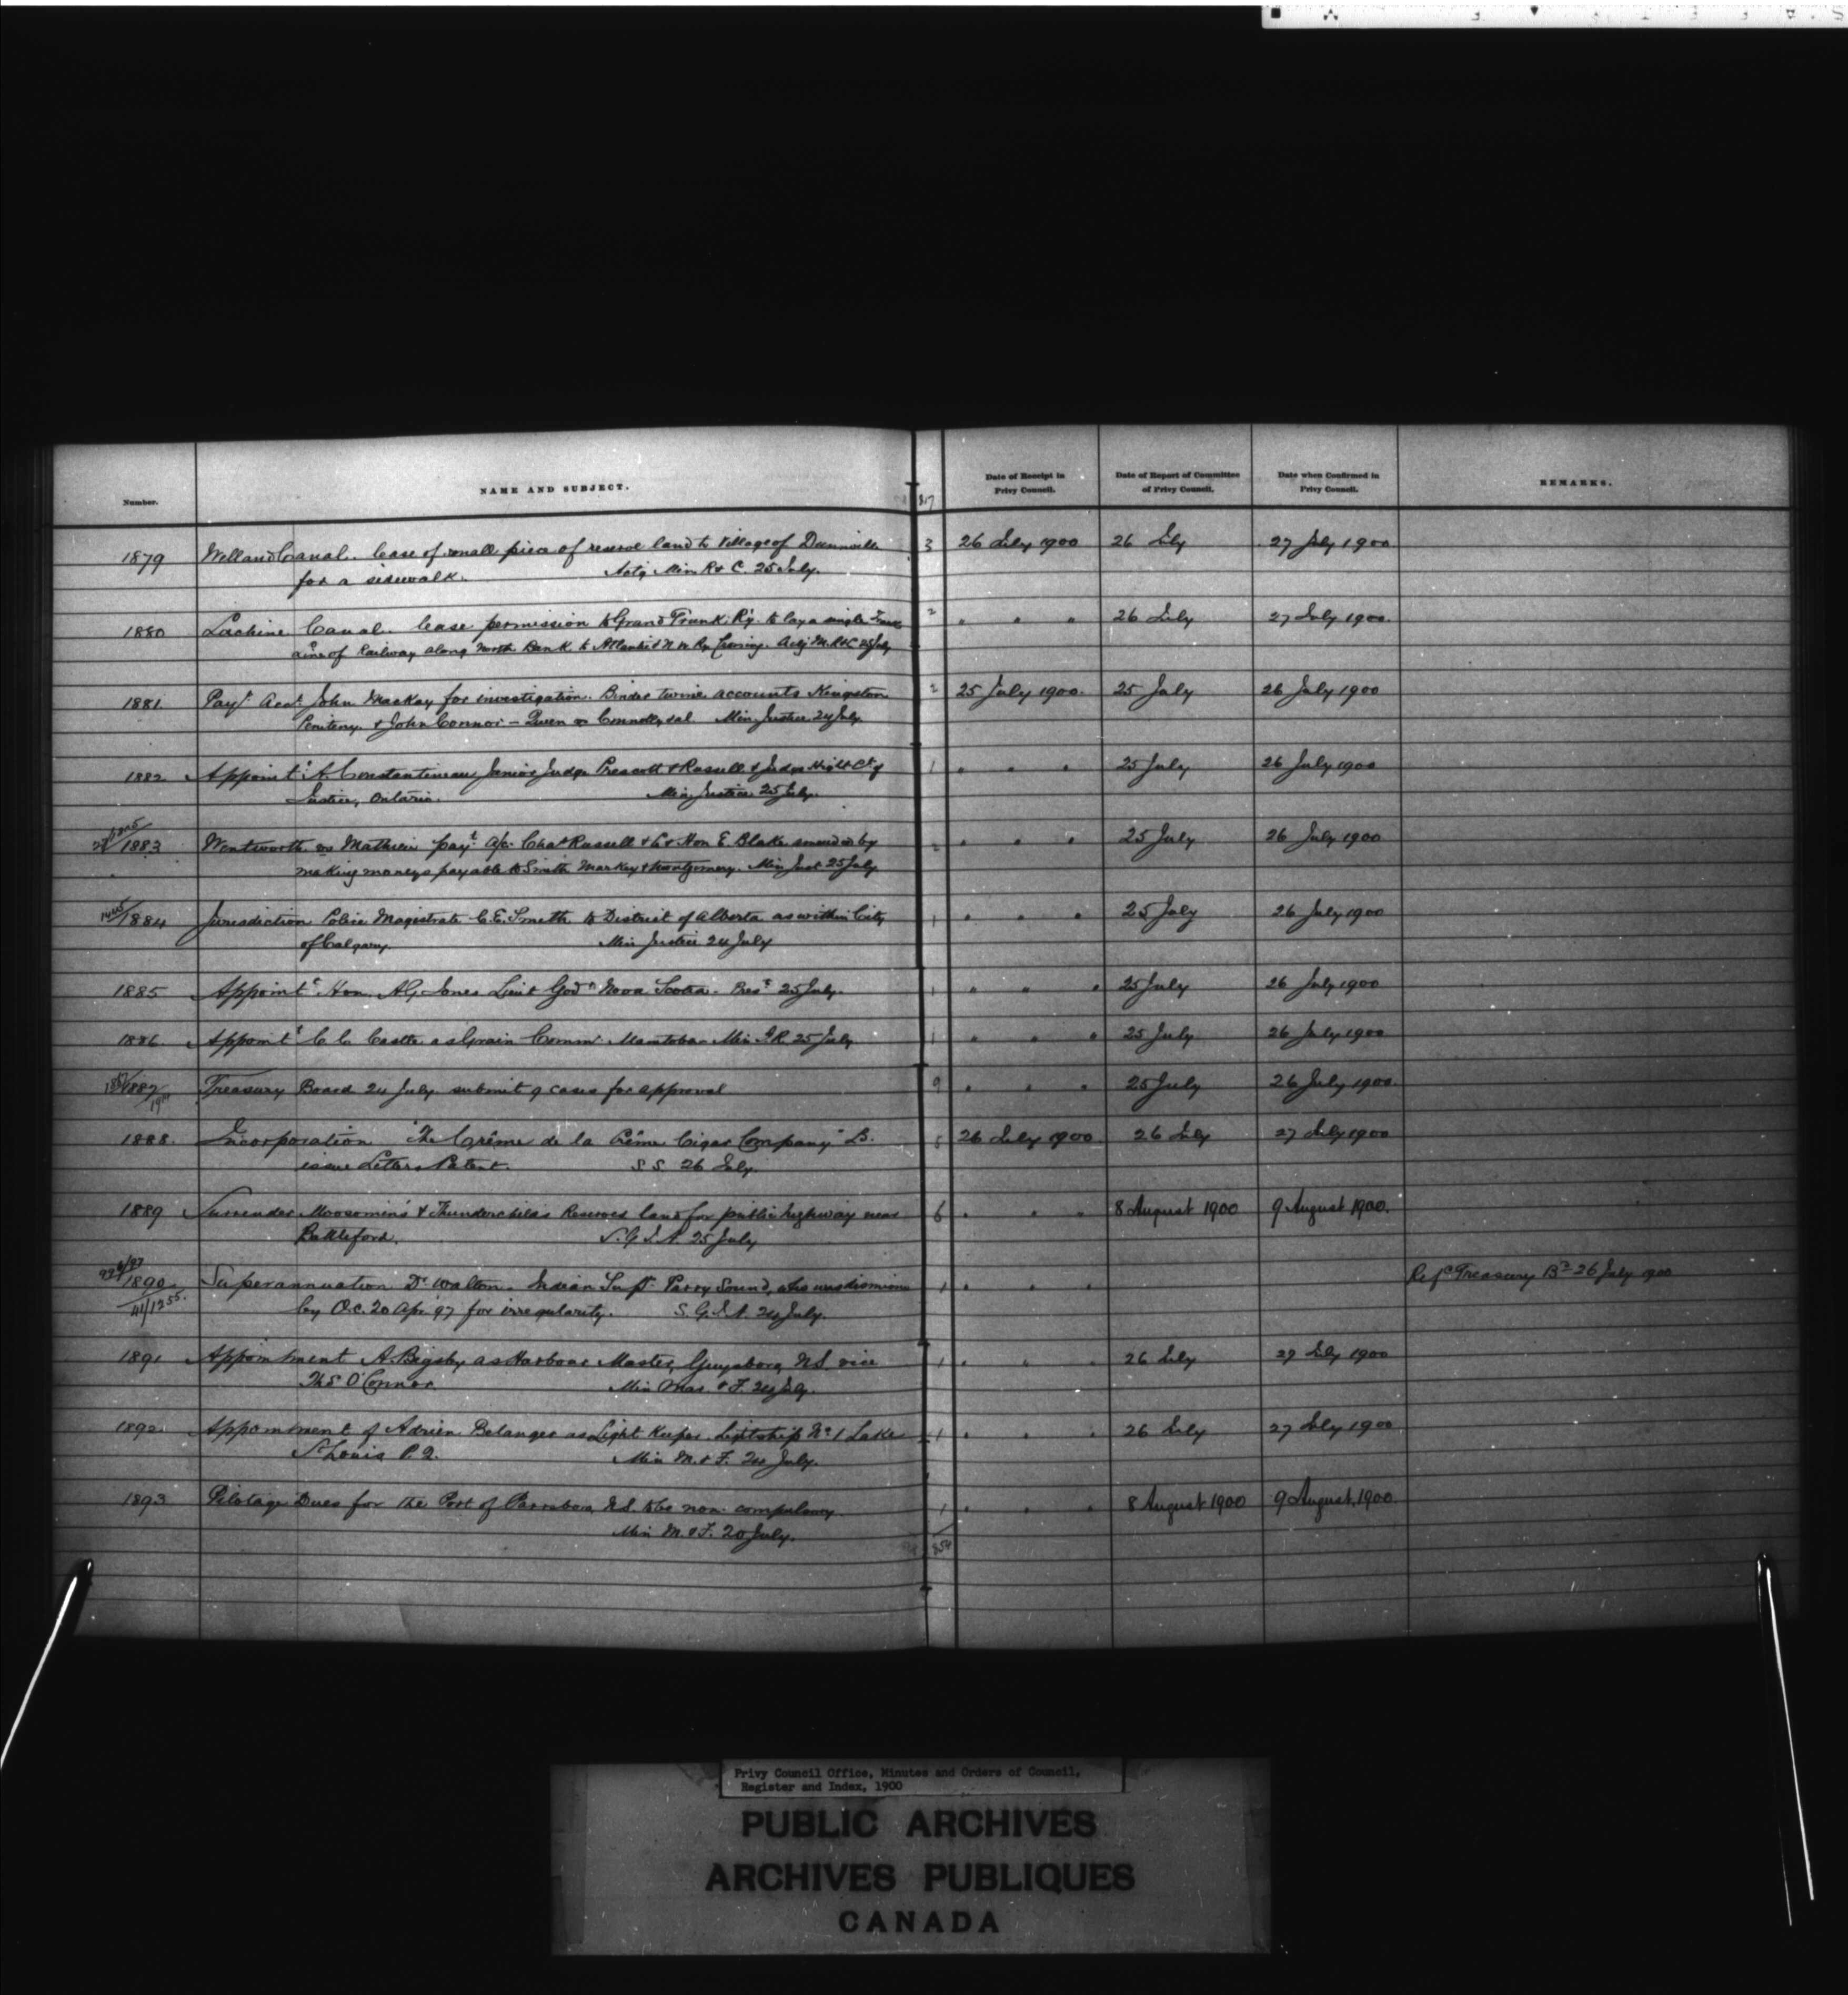 Number.
NAME AND SUBJECT.
817
Date of Receipt in
Privy Council.
Date of Report of Committee
of Privy Council.
Date when Confirmed in
Privy Council.
REMARKS.
1879 Welland Canal. lease of small piece of reserve land to Village of Dunnville 3 26 July 1900 26 July 27 July 1900
for a sidewalk. Actg Min R & C. 25 July.
1880 Lachine Canal. lease permission to Grand Trunk Ry. to lay a single Track 2 " " " 26 July 27 July 1900.
Line of Railway along North Bank to Atlantic & N W Ry Crossing. Actg M. R & C 25 July
1881 Payt Acct John Mackay for investigation. Binder twine accounts Kingston 2 25 July 1900. 25 July 26 July 1900
Penitery. & John Connor - Queen vs Connolly et al Min. Justice 24 July
1882 Appointt A. Constantineau Junior Judge Prescott & Russell & Judge High Ct of 1 " " " 25 July 26 July 1900
Justice, Ontario. Min Justice 25 July.
1883 Wentworth vs Mathieu payt a/c Chas Russell & Co & Hon E. Blake amended by 2 " " " 25 July 26 July 1900
making moneys payable to Smith Markey & Montgomery. Min Just 25 July
1884 Jurisdiction Police Magistrate C. E. Smith to District of Alberta as within City 1 " " " 25 July 26 July 1900
of Calgary. Min Justice 24 July
1885 Appointt Hon. A G. Jones Lieut Govr Nova Scotia. Prest 25 July. 1 " " " 25 July 26 July 1900
1886 Appointt C. C. Castle as Grain Commr Manitoba Min I R. 25 July 1 " " " 25 July 26 July 1900
1887 Treasury Board 24 July submit 9 cases for approval 9 " " " 25 July 26 July 1900.
1888. Incorporation "The Crême de la Crême Cigar Company" 5 26 July 1900. 26 July 27 July 1900
issue Letters Patent. S S. 26 July.
1889 Surrender Moosomin's & Thunderchilds Reserves land for public highway near 6 " " " 8 August 1900 9 August 1900.
Battleford. S. G. I. A. 25 July
996/97
1890 Superannuation Dr Walton. Indian Supt Parry Sound, who was dismissed 1 " " " Refd Treasury Bd 26 July 1900
41/1255. by O.C. 20 Apr '97 for irregularity. S. G. I. A. 24 July.
1891 Appointment A. Bigsby as Harbour Master, Guysboro, N.S. vice 1 " " " 26 July 27 July 1900
Thos O'Connor. Min Mar & F. 24 July.
1892. Appointment of Adrien Belanger as Light Keeper Lightship No 1 Lake 1 " " " 26 July 27 July 1900
St Louis P. Q. Min M. & F. 24 July.
1893 Pilotage Dues for the Port of Parrsboro, N.S. to be non compulsory 1 " " " 8 August 1900 9 August, 1900.
Min M. & F. 20 July.
854
Privy Council Office, Minutes and Orders of Council,
Register and Index, 1900
PUBLIC ARCHIVES
ARCHIVES PUBLIQUES
CANADA